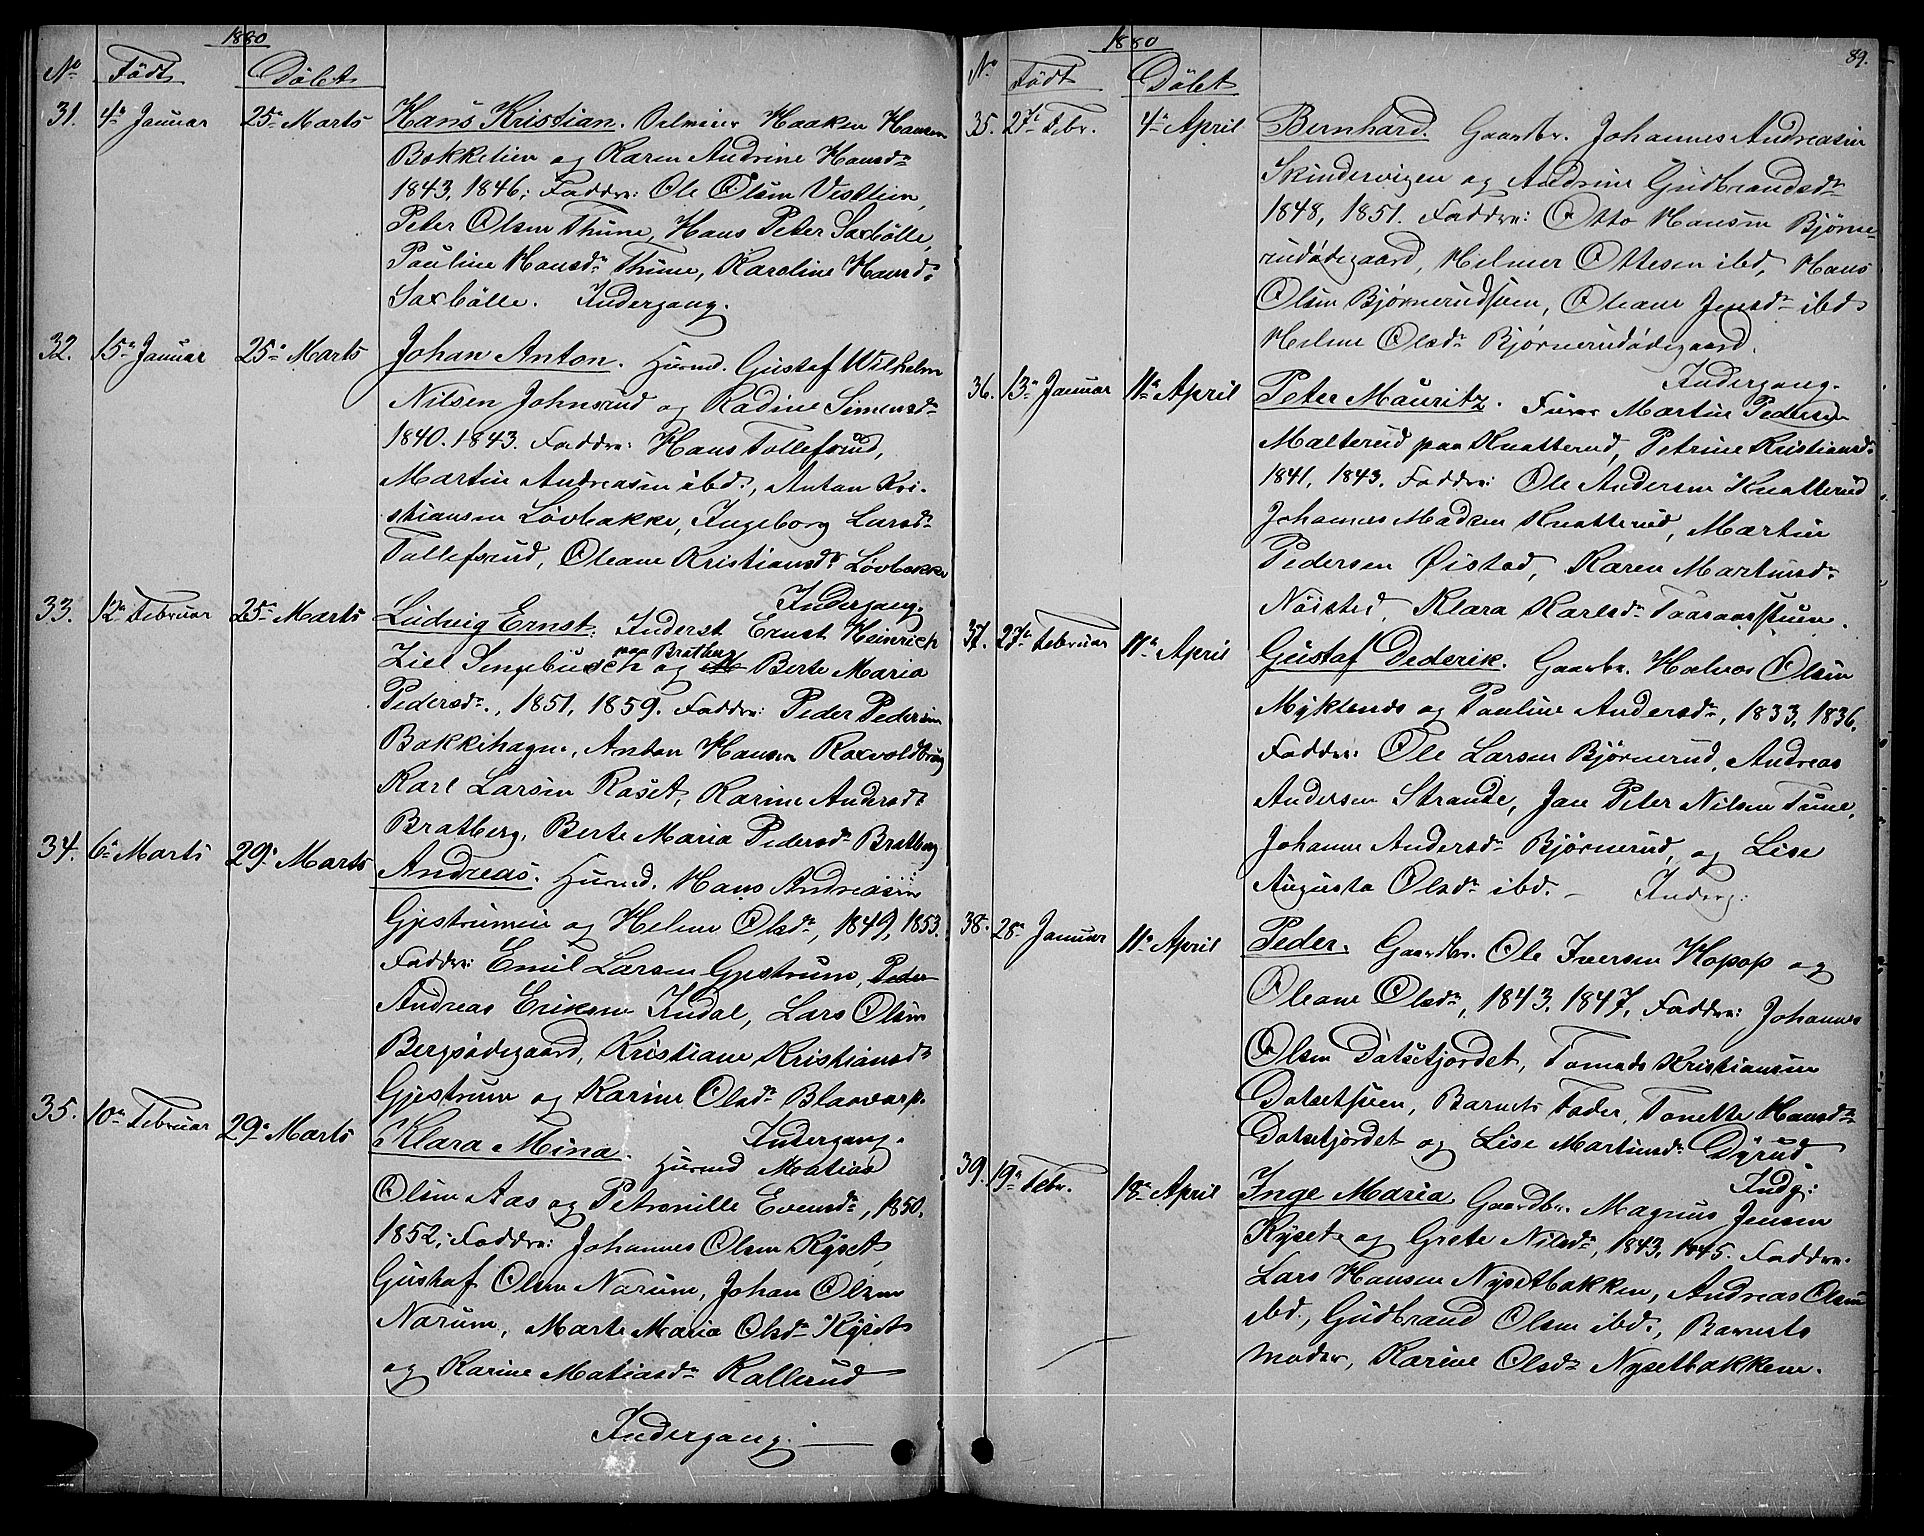 1880
No Födt Döbt
31. 4de Januar 25de Marts Hans Kristian. Selveier Haaken Hansen
Bakkelien og Karen Andrine Hansdr
1843, 1846; Faddre: Ole Olsen Vestlien,
Peter Olsen Thune, Hans Peter Saxbölle,
Pauline Hansdr Thune, Karoline Havrdr
Saxbölle. Indergang.
32. 15de Januar 25de Marts Johan Anton. Husmd. Gustaf Wilhelm
Nilsen Johnsrud og Radine Simensdr
1840. 1843. Faddre: Hans Tollefsrud,
Martin Andreasen ibd., Anton Kri-
stiansen Lövbakke, Ingeborg Larsdr
Tollefsrud, Oleane Kristiansdr Lövbakke
Indergang.
33. 12te Februar 25de Marts Ludvig Ernst. Inderst Ernst Heinrich
Ziel Sengebusch paa Bratberg og Berte Maria
Pedersdr., 1851, 1859. Faddre: Peder Pedersen
Bakkehagen, Anton Hansen
Karl Larsen Röset, Karine Andersdr
Bratberg, Berte Maria Pedersdr Bratberg
34. 6te Marts 29de Marts Andreas. Husmd. Hans Andreasen
Gjestrumeie og Helene Olsdr, 1849, 1853.
Faddre: Emil Larsen Gjestrum, Peder
Andreas Eriksen Indal, Lars Olsen
Bergsödegaard, Kristiane Kristiansdr
Gjestrum og Karine Olsdr Blaavarp.
Indergang.
35. 10de Februar 29de Marts Klara Mina. Husmd Matias
Olsen Aas og Petronille Evensdr, 1850.
1852; Faddre: Johannes Olsen Kyset,
Gustaf Olsen Narum, Johan Olsen
Narum, Marte Maria Olsdr Kyset
og Karine Matiasdr Kallerud
Indergang.
1880 89.
No Födt Döbt
35. 27de Febr. 4de April Bernhard. Gaardbr. Johannes Andreasen
Skindervigen og Andrine Gudbrandsdr
1848, 1851. Faddre: Otto Hansen Bjørne-
rudødegaard, Helmer Ottesen ibd, Hans
Olsen Bjørnerudsveen, Oleane Jensdr ibd
Helene Olsdr Bjørnerudødegaard.
Indergang.
36. 13de Januar 11te April Peter Mauritz. Furer Martin Pedersen
Malterud paa Knatterud, Petrine Kristiansdr
1841, 1843. Faddre: Ole Andersen Knatterud
Johannes Madsen Knatterud, Martin
Pedersen Øistad, Karen Martinsdr
Nöisted, Klara Karlsdr
37. 27de Februar 11te April Gustaf Dederik. Gaardbr. Halvor Olsen
Myklands og Pauline Andersdr, 1833, 1836.
Faddre: Ole Larsen Bjørnerud, Andreas
Andersen Strande, Jan Peter Nilsen Tune,
Johanne Andersdr Bjørnerud, og Lise
Augusta Olsdr ibd. - Inderg:
38. 28de Januar 11te April Peder. Gaardbr. Ole Iversen Kopop og
Oleane Olsdr, 1843, 1847, Faddre: Johannes
Olsen Dotsetjordet, Tomads Kristiansen
Dotsetsveen, Barnets Fader, Tonette Hansdr
Dotsetjordet og Lise Martinsdr Dyrud
Indg:
39. 19de Febr. 18de April Inge Maria. Gaardbr. Magnus Jensen
Kyset og Grete Nilsdr, 1843, 1845. Faddre:
Lars Hansen Nysetbakken, Andreas Olsen
ibd., Gudbrand Olsen ibd., Barnets
Moder, Karine Olsdr Nysetbakken.